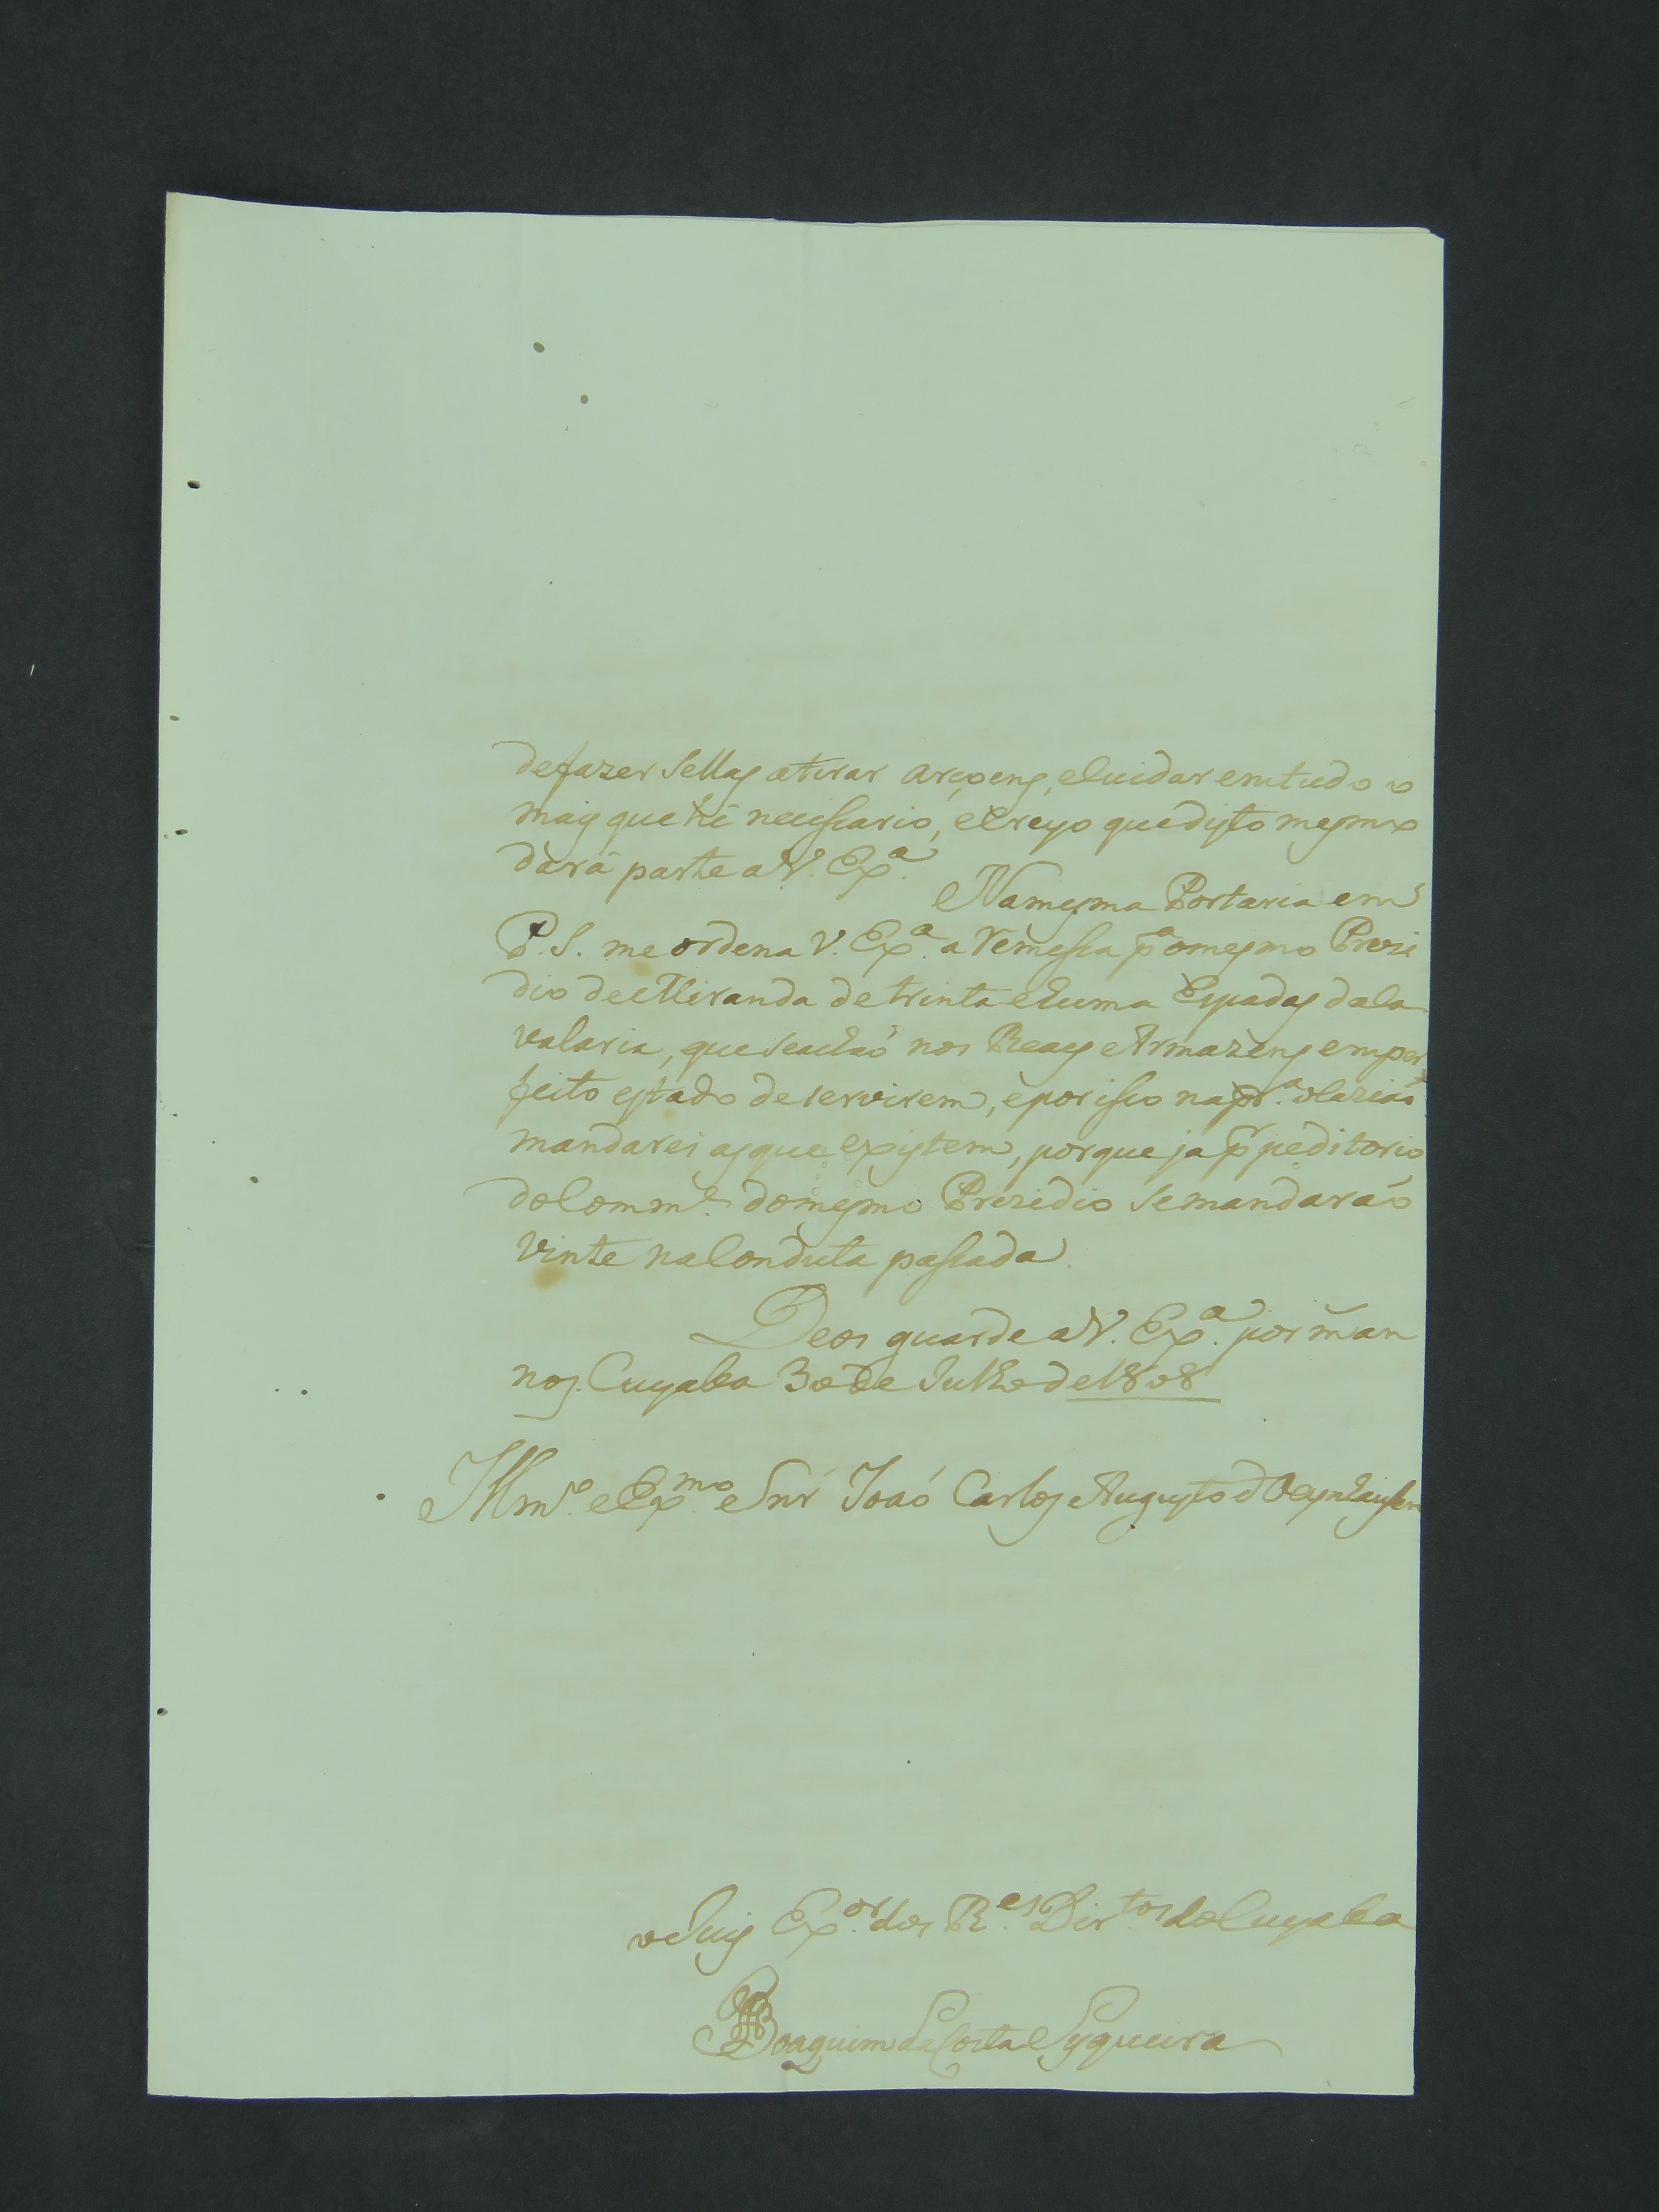 defazer Sellas atirar arçoens, ecuidar emtudo o
mais que hé necessario, ecreyo quedisto mesmo
dará parte aV. Exª.
Namesma Portaria em
P. S. me ordena V. Exª. a remessa pª omesmo Prezi
dio deMiranda de trinta ehuma Espadas daCa
valaria, que seachaó nos Reaes Armazens emper
feito estado deservirem, eporisso napr.ª
mandarei asque existem, porque ja pr peditorio
doComm.e domesmo Prezidio semandaraó
vinte naConduta passada.
Deos guarde aV. Exª. por m an
nos. Cuyaba 30 de Julho de 1808
Illmº. eExmo. Snr Joaó Carlos Augusto d'Oeynhausen
o Juis Exor. dos Res. Dirtos. doCuyaba
Joaquim da Costa Syqueira